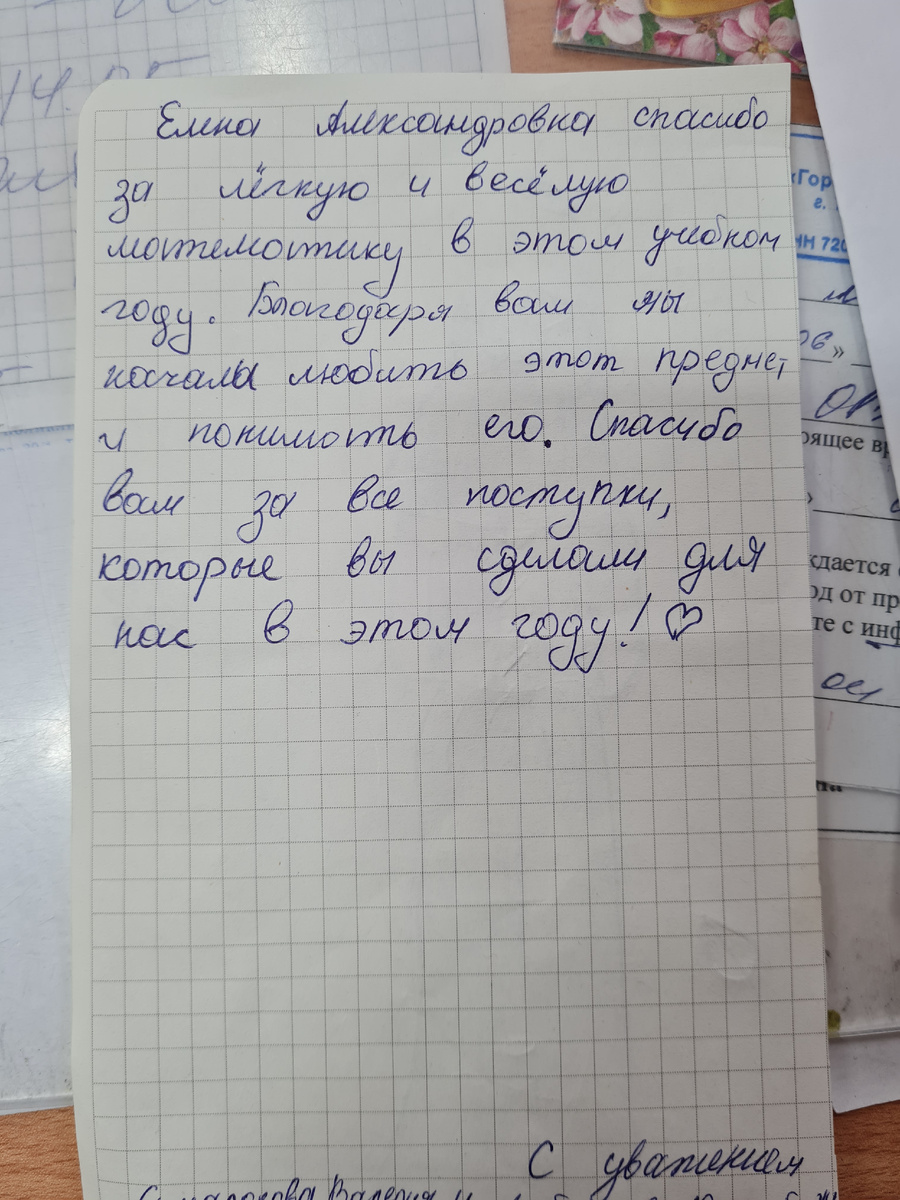 Елена Александровна спасибо
за лёгкую и весёлую
математику в этом учебном
году. Благодаря вам мы
начала любить этот предмет
и понимать его. Спасибо
вам за все поступки,
которые вы сделали для
нас в этом году! ♡
С уважением
Валерия и
14.05
«Гор
г.
НН 720
»
оящее вр
ждается
од от пр
те с инф